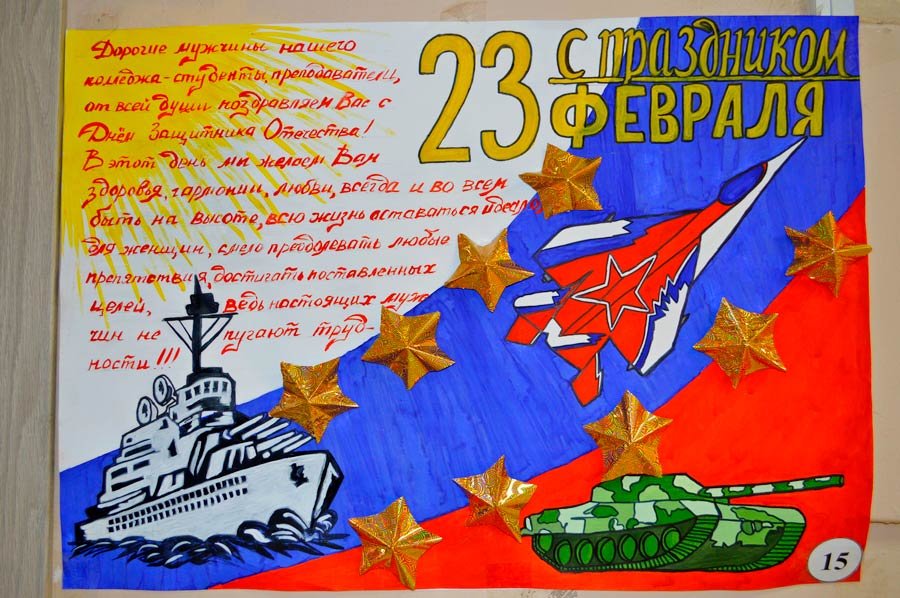 Дорогие мужчины нашего
колледжа-студенты, преподаватели,
от всей души поздравляем Вас с
Днём Защитника Отечества!
В этот день мы желаем Вам
здоровья, гармонии, любви, всегда и во всем
быть на высоте, всю жизнь оставаться идеалом
для женщин, смело преодолевать любые
препятствия, достигать поставленных
целей, ведь настоящих муж-
чин не пугают труд-
ности!!!
23 С ПРАЗДНИКОМ
ФЕВРАЛЯ
15